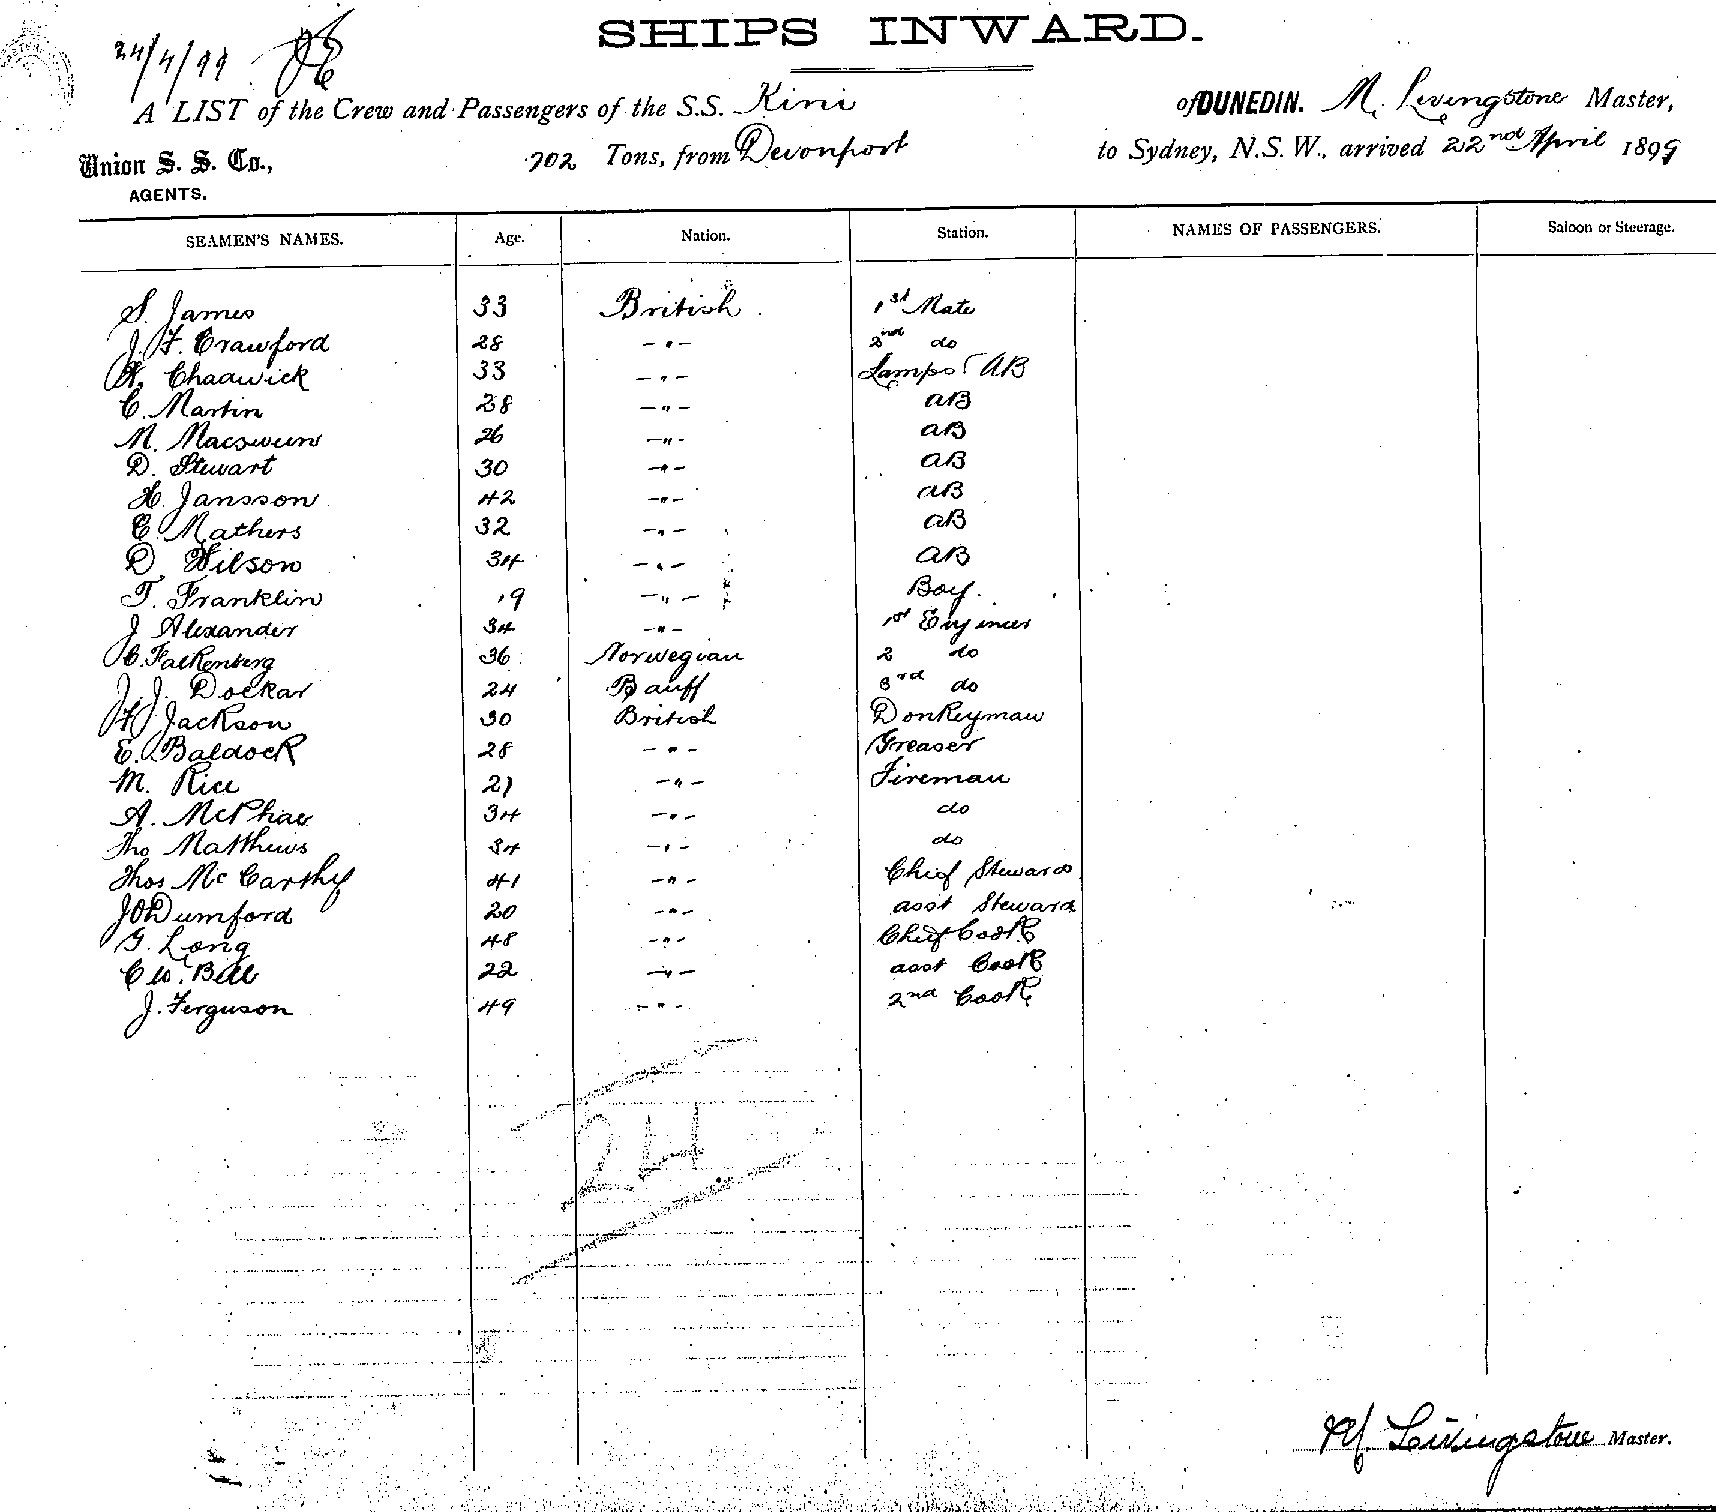 SHIPS INWARD.
24/4/99
A LIST of the Crew and Passengers of the S.S. Kini of DUNEDIN. M. Livingstone Master,
Union S. S. Co., AGENTS. 702 Tons, from Devonport to Sydney, N.S.W., arrived 22nd April 1899
SEAMEN'S NAMES. Age. Nation. Station. NAMES OF PASSENGERS. Saloon or Steerage.
S. James 33 British 1st Mate
J. F. Crawford 28 -"- 2nd do
Chadwick 33 -"- Lamps & AB
C. Martin 28 -"- AB
M. Macswein 26 -"- AB
D. Stewart 30 -"- AB
H. Jansson 42 -"- AB
E. Mathers 32 -"- AB
D. Wilson 34 -"- AB
T. Franklin 19 -"- Boy.
J Alexander 34 -"- 1st Engineer
C. Falkenberg 36 Norwegian 2 do
J. J. Dockar 24 Banff 3rd do
Jackson 30 British Donkeyman
E. Baldock 28 -"- Greaser
M. Rice 21 -"- Fireman
A. McPhae 34 -"- do
Tho Matthews 34 -"- do
Thos McCarthy 41 -"- Chief Steward
J O Dumford 20 -"- asst Steward
G. Long 48 -"- Chief Cook
Bell 22 -"- asst Cook
J. Ferguson 49 -"- 2nd Cook
24
M. Livingstone Master.